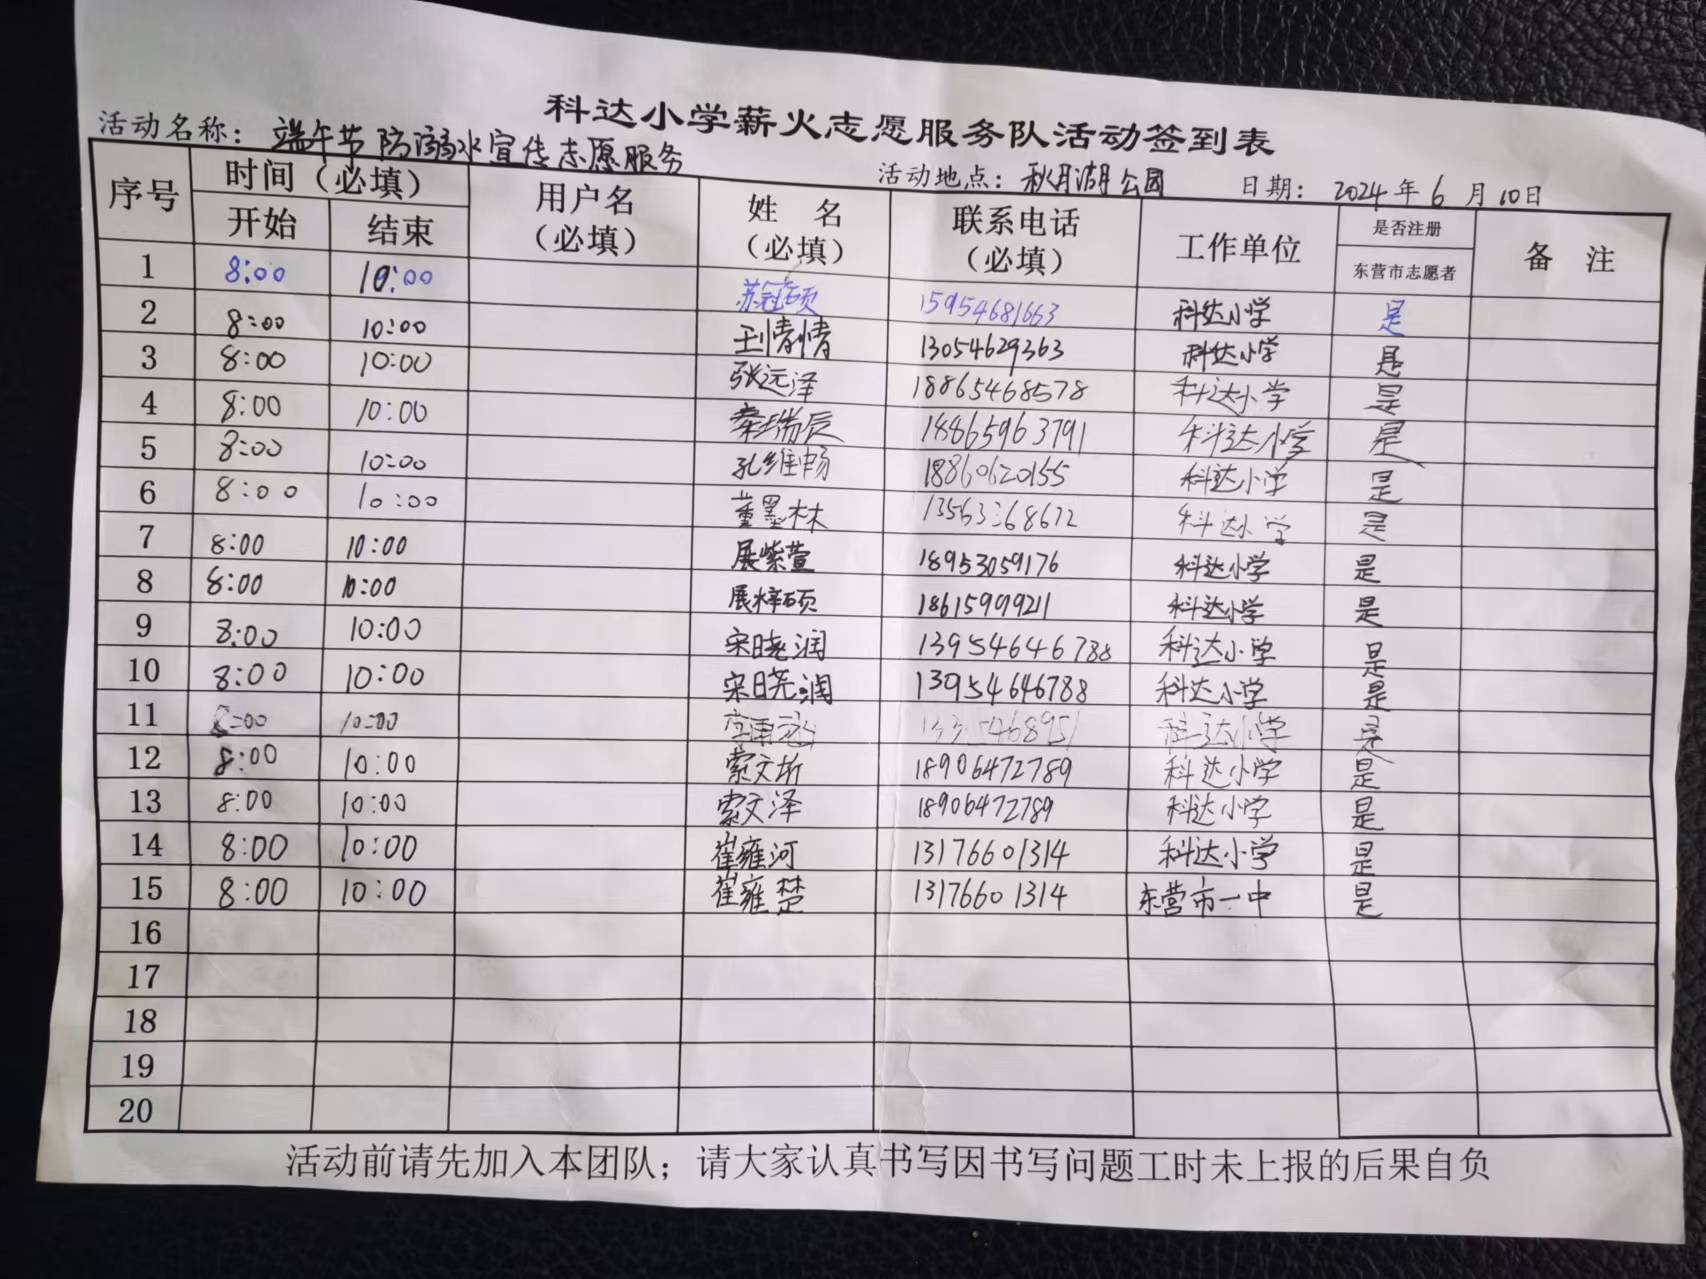 科达小学薪火志愿服务队活动签到表
活动名称：端午节防溺水宣传志愿服务 活动地点：秋月湖公园 日期：2024年6月10日
序号 时间（必填） 用户名（必填） 姓 名（必填） 联系电话（必填） 工作单位 是否注册 备 注
开始 结束 东营市志愿者
1 8:00 10:00 苏冠硕 15954681663 科达小学 是
2 8:00 10:00 王情情 13054629363 科达小学 是
3 8:00 10:00 张远泽 18865468578 科达小学 是
4 8:00 10:00 秦瑞辰 18865963791 科达小学 是
5 8:00 10:00 孔维畅 18860620155 科达小学 是
6 8:00 10:00 董墨林 科达小学 是
7 8:00 10:00 展紫萱 18953059176 科达小学 是
8 8:00 10:00 展梓硕 18615999211 科达小学 是
9 8:00 10:00 宋晓润 13954646788 科达小学 是
10 8:00 10:00 宋晓润 13954646788 科达小学 是
11 8:00 10:00 科达小学 是
12 8:00 10:00 索文析 18906472789 科达小学 是
13 8:00 10:00 索文泽 18906472789 科达小学 是
14 8:00 10:00 崔雍河 13176601314 科达小学 是
15 8:00 10:00 崔雍楚 13176601314 东营市一中 是
16
17
18
19
20
活动前请先加入本团队；请大家认真书写因书写问题工时未上报的后果自负